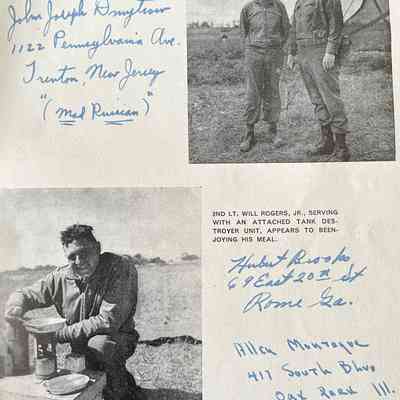 John Joseph Dmytrow
1122 Pennsylvania Ave.
Trenton, New Jersey
"(Mad Russian)"
2ND LT. WILL ROGERS, JR., SERVING
WITH AN ATTACHED TANK DES-
TROYER UNIT, APPEARS TO BEEN-
JOYING HIS MEAL.
Hubert Brooks
69 East 20th St
Rome Ga.
Allen Montague
417 South Blvd
Oak Park Ill.